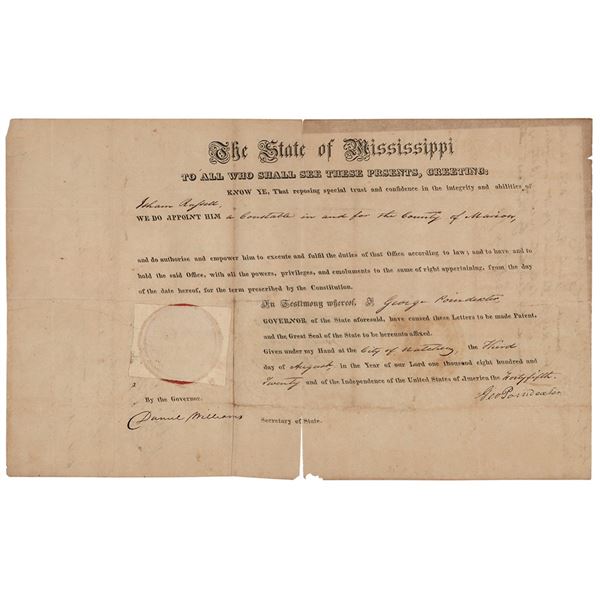 The State of Mississippi
TO ALL WHO SHALL SEE THESE PRSENTS, GREETING:
KNOW YE, That reposing special trust and confidence in the integrity and abilities of
Isham Russell,
WE DO APPOINT HIM a Constable in and for the County of Marion,
and do authorise and empower him to execute and fulfil the duties of that Office according to law; and to have and to
hold the said Office, with all the powers, privileges, and emoluments to the same of right appertaining, from the day
of the date hereof, for the term prescribed by the Constitution.
In Testimony whereof, I George Poindexter,
GOVERNOR of the State aforesaid, have caused these Letters to be made Patent,
and the Great Seal of the State to be hereunto affixed.
Given under my Hand at the City of Natchez, the Third
day of August, in the Year of our Lord one thousand eight hundred and
Twenty and of the Independence of the United States of America the Forty fifth.
Geo Poindexter
By the Governor.
Daniel Williams Secretary of State.